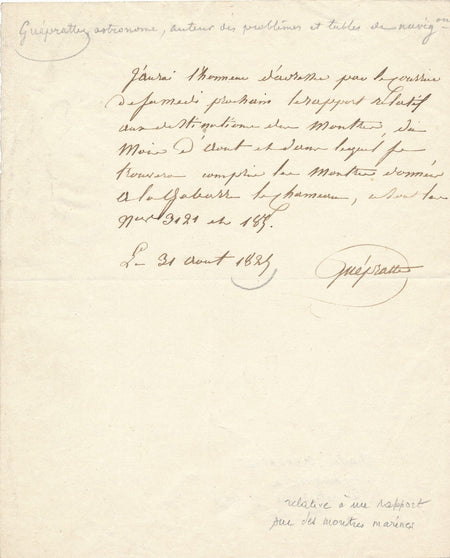 Guépratte astronome, auteur des problèmes et tables de navigon
J'aurai l'honneur d'adresser par le courrier
de samedi prochain le rapport relatif
aux destinations des Montres, du
Mois d'Aout et dans lequel se
trouvera comprise les Montres données
a la Gabarre le chameau, sous les
Nos 3121 et 185.
Le 31 aout 1825
Guépratte
relative à un rapport
sur des montres marines